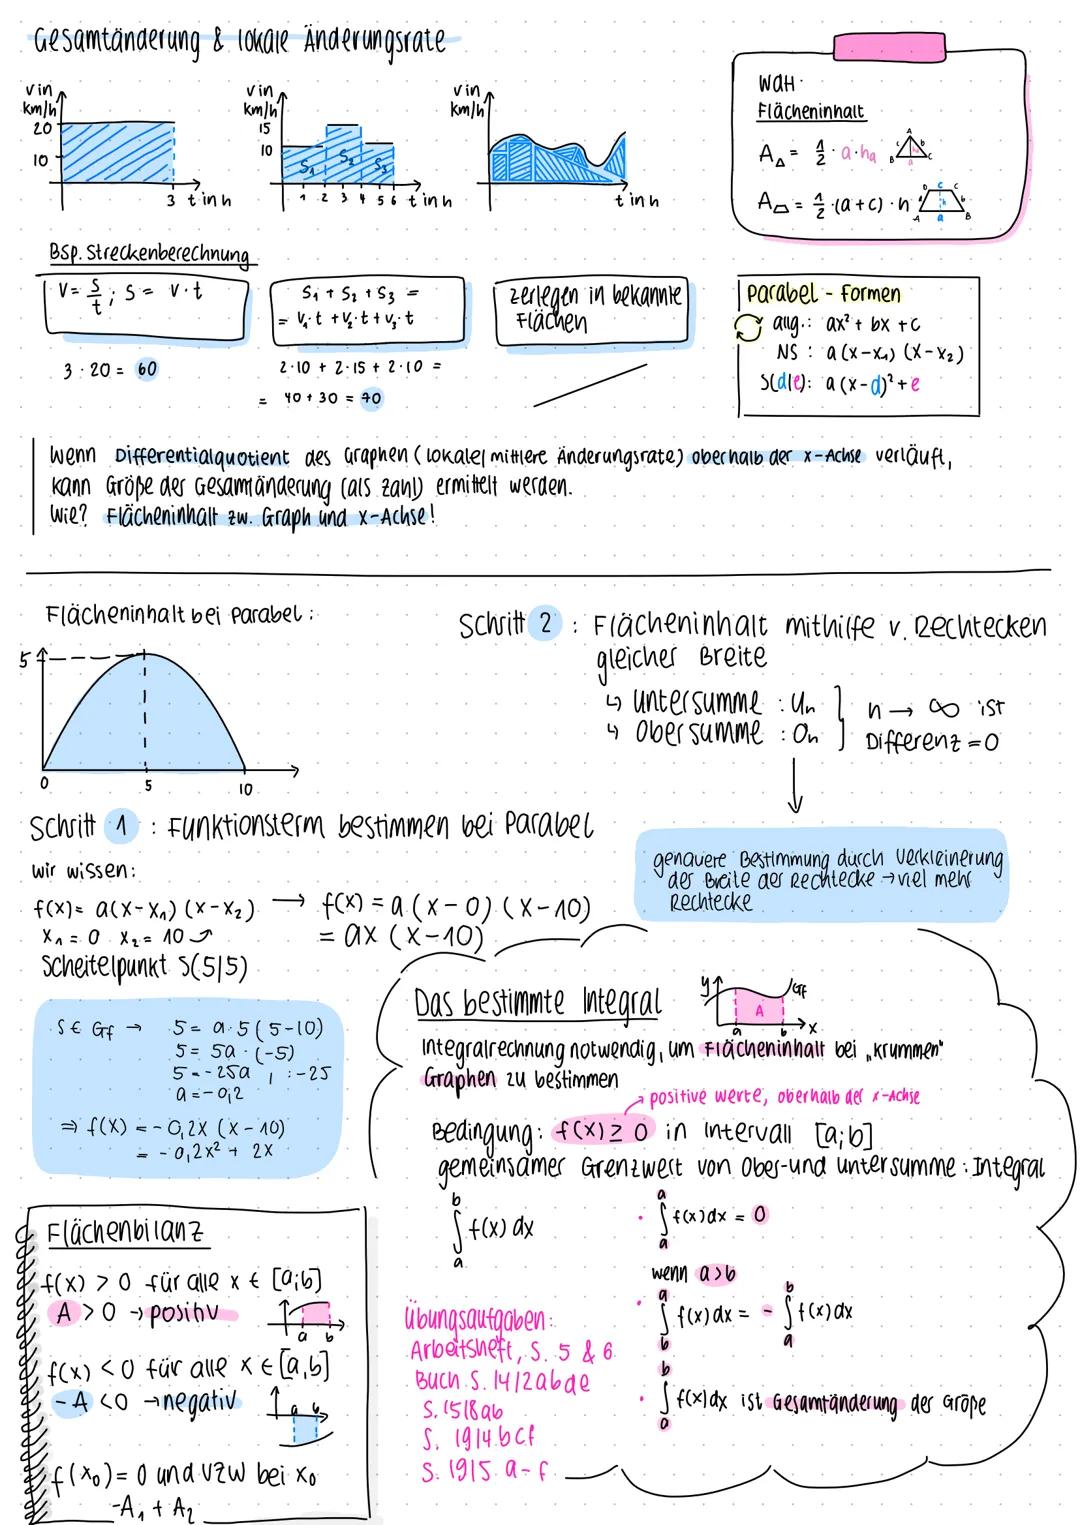 Gesamtänderung & lokale Änderungsrate
v in km/h
20
10
3 t in h
v in km/h
15
10
S₁ S₂ S₃
1 2 3 4 5 6 t in h
v in km/h
t in h
WdH.
Flächeninhalt
A△ = 1/2 · a · hₐ
A B C a b c
A⏢ = 1/2 · (a + c) · h
A B C D a b c d h
Bsp. Streckenberechnung
v = s/t ; s = v · t
3 · 20 = 60
S₁ + S₂ + S₃ =
= v₁ · t + v₂ · t + v₃ · t
2 · 10 + 2 · 15 + 2 · 10 =
= 40 + 30 = 70
zerlegen in bekannte
Flächen
Parabel - Formen
allg.: ax² + bx + c
NS : a (x - x₁) (x - x₂)
S(d|e): a (x - d)² + e
Wenn Differentialquotient des Graphen (lokale/ mittlere Änderungsrate) oberhalb der x-Achse verläuft,
kann Größe der Gesamtänderung (als Zahl) ermittelt werden.
Wie? Flächeninhalt zw. Graph und x-Achse!
Flächeninhalt bei Parabel:
5
0 5 10
Schritt 1 : Funktionsterm bestimmen bei Parabel
wir wissen:
f(x) = a(x - x₁) (x - x₂) → f(x) = a (x - 0) (x - 10)
x₁ = 0 x₂ = 10 = ax (x - 10)
Scheitelpunkt S(5|5)
S ∈ Gf → 5 = a · 5 (5 - 10)
5 = 5a · (-5)
5 = -25a | : -25
a = -0,2
⇒ f(x) = -0,2x (x - 10)
= -0,2x² + 2x
Schritt 2 : Flächeninhalt mithilfe v. Rechtecken
gleicher Breite
↳ Untersumme : Uₙ
↳ Obersumme : Oₙ
n → ∞ ist
Differenz = 0
genauere Bestimmung durch Verkleinerung
der Breite der Rechtecke → viel mehr
Rechtecke
Das bestimmte Integral
y A Gf a b x
Integralrechnung notwendig, um Flächeninhalt bei „krummen"
Graphen zu bestimmen
positive Werte, oberhalb der x-Achse
Bedingung: f(x) ≥ 0 in Intervall [a;b]
gemeinsamer Grenzwert von Ober- und Untersumme: Integral
∫ₐᵇ f(x) dx
· ∫ₐᵃ f(x) dx = 0
wenn a > b
· ∫_b^a f(x) dx = - ∫_a^b f(x) dx
· ∫ₐᵇ f(x) dx ist Gesamtänderung der Größe
Flächenbilanz
f(x) > 0 für alle x ∈ [a;b]
A > 0 → positiv
a b
f(x) < 0 für alle x ∈ [a,b]
-A < 0 → negativ
a b
f(x₀) = 0 und VZW bei x₀
-A₁ + A₂
Übungsaufgaben:
Arbeitsheft, S. 5 & 6
Buch S. 14/2abde
S. 15/8ab
S. 19/4bcf
S. 19/5 a-f